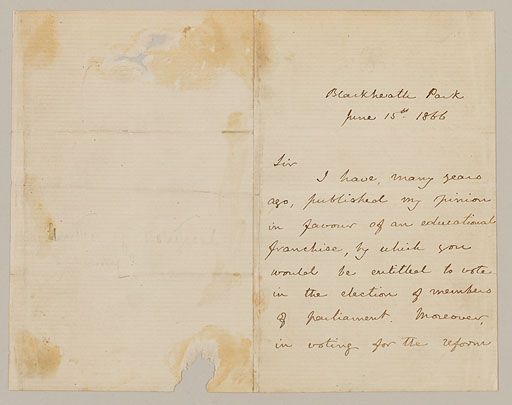 Blackheath Park
June 15th 1866
Sir
I have, many years
ago, published my opinion
in favour of an educational
franchise, by which you
would be entitled to vote
in the election of members
of parliament. Moreover,
in voting for the reform